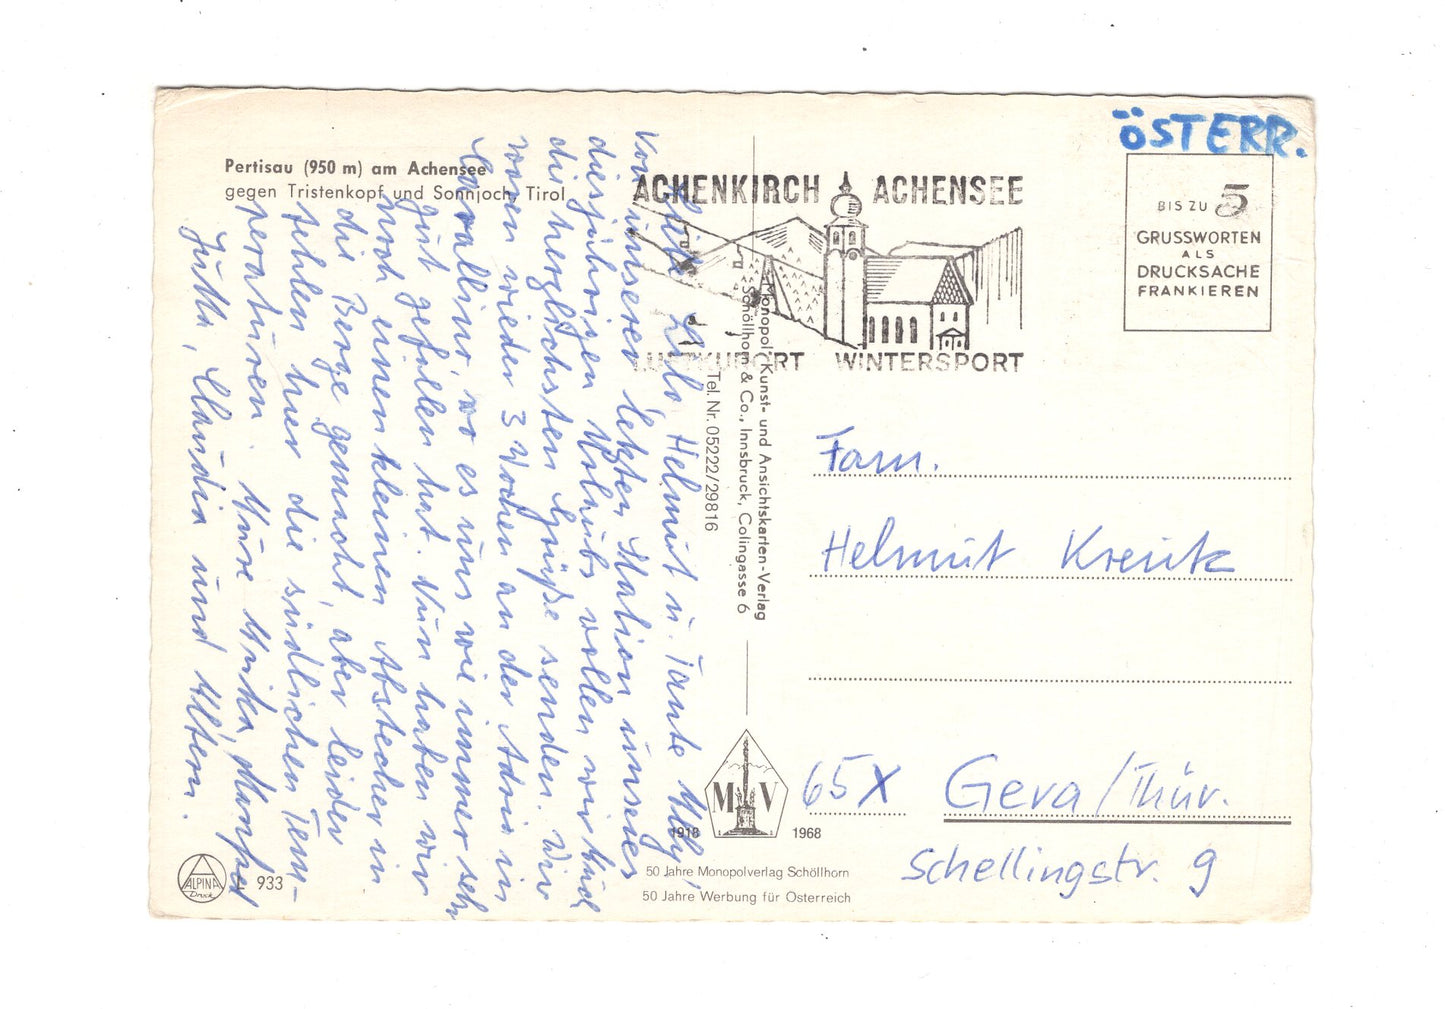 ÖSTERR.
Pertisau (950 m) am Achensee
gegen Tristenkopf und Sonnjoch, Tirol
ACHENKIRCH ACHENSEE
LUFTKURORT WINTERSPORT
BIS ZU 5
GRUSSWORTEN
ALS
DRUCKSACHE
FRANKIEREN
Liebe Lilo, Helmut u. Tante Elly!
Von unserer letzten Station unseres
diesjährigen Urlaubs wollen wir Euch
die herzlichsten Grüße senden. Wir
waren wieder 3 Wochen an der Adria in
Cavallino, wo es uns wie immer sehr
gut gefallen hat. Nun haben wir
noch einen kleinen Abstecher in
die Berge gemacht, aber leider
fehlen hier die südlichen Tem-
peraturen. Eure Erika, Manfred
Jutta, Claudia und Eltern.
Monopol, Kunst- und Ansichtskarten-Verlag
Schöllhorn & Co., Innsbruck, Colingasse 6
Tel. Nr. 05222/29816
Fam.
Helmut Kreutz
65X Gera/Thür.
Schellingstr. 9
M V
1918 1968
50 Jahre Monopolverlag Schöllhorn
50 Jahre Werbung für Österreich
ALPINA
Druck
L 933